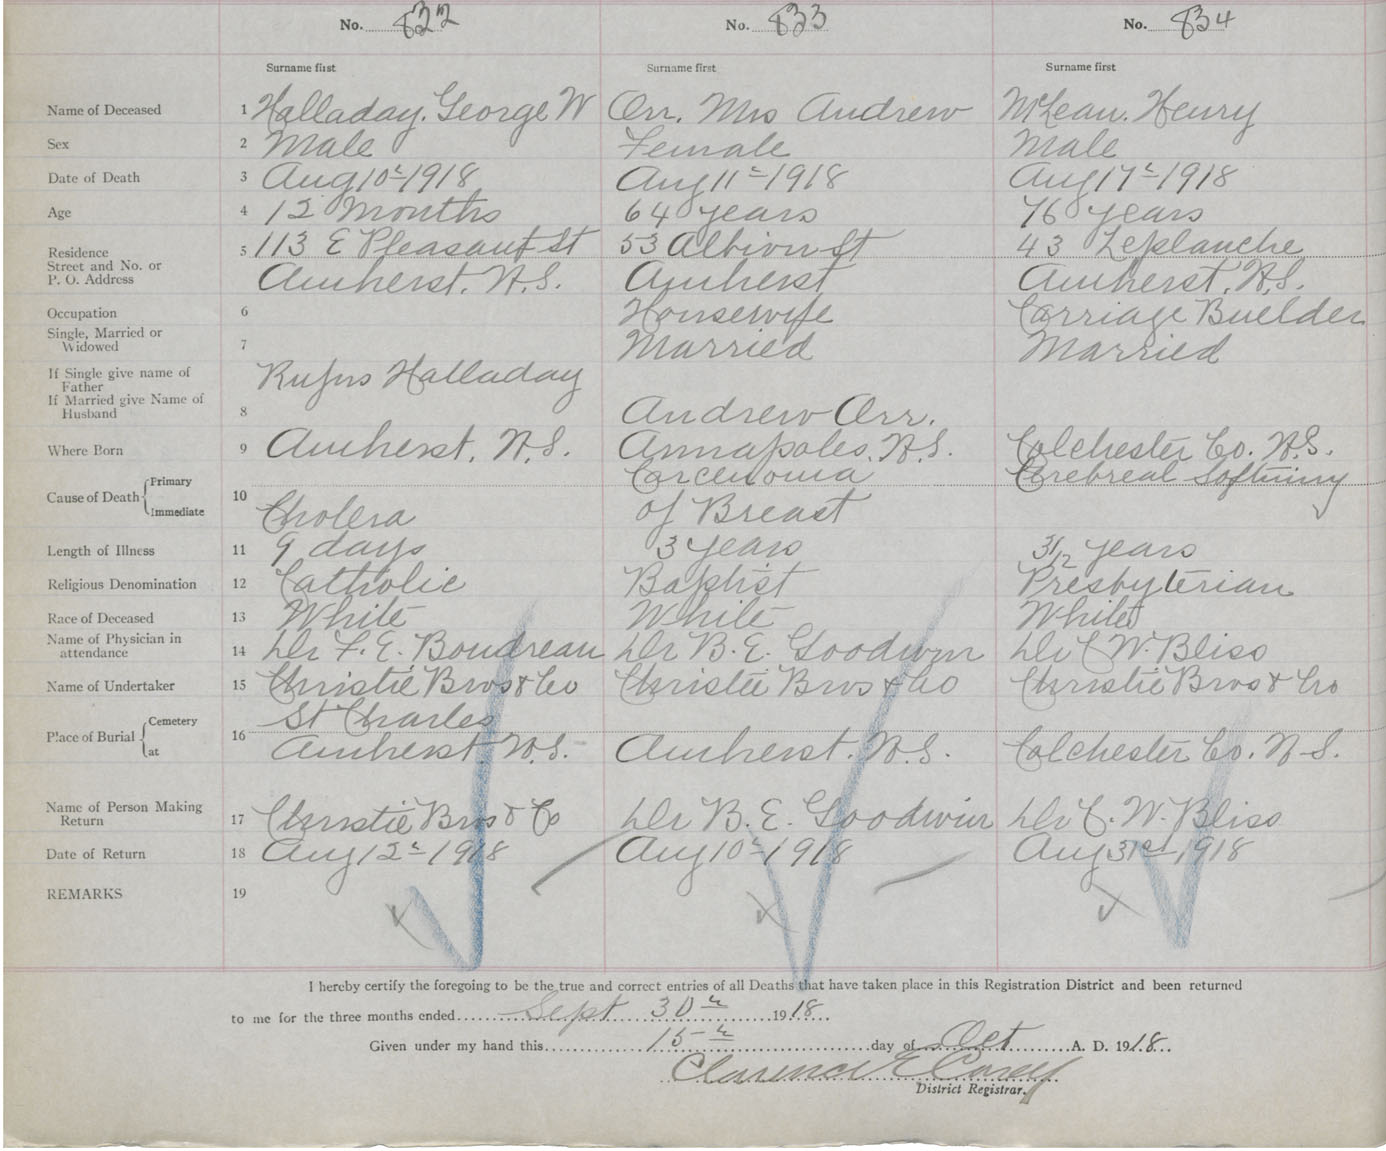 No. 832 No. 833 No. 834
Surname first Surname first Surname first
Name of Deceased 1 Halladay. George W Orr. Mrs Andrew McLean. Henry
Sex 2 Male Female Male
Date of Death 3 Aug 10th 1918 Aug 11th 1918 Aug 17th 1918
Age 4 12 Months 64 years 76 years
Residence 5 113 E Pleasant St 53 Albion St 43 Leplanche
Street and No. or
P. O. Address Amherst. N.S. Amherst Amherst. N.S.
Occupation 6 Housewife Carriage Buelder
Single, Married or
Widowed 7 Married Married
If Single give name of
Father Rufus Halladay
If Married give Name of
Husband 8 Andrew Orr.
Where Born 9 Amherst. N.S. Annapoles. N.S. Colchester Co. N.S.
Cause of Death Primary Carcenoma Cerebreal Softning
10
Immediate Cholera of Breast
Length of Illness 11 9 days 3 years 3 1/2 years
Religious Denomination 12 Catholic Baptist Presbyterian
Race of Deceased 13 White White White
Name of Physician in
attendance 14 Dr F. E. Boudreau Dr B. E. Goodwin Dr C W. Bliss
Name of Undertaker 15 Christie Bros & Co Christie Bros & Co Christie Bros & Co
Place of Burial Cemetery St Charles
16
at Amherst N.S. Amherst. N.S. Colchester Co. N-S.
Name of Person Making
Return 17 Christie Bros & Co Dr B. E. Goodwin Dr C. W. Bliss
Date of Return 18 Aug 12th 1918 Aug 10th 1918 Aug 31st 1918
REMARKS 19
I hereby certify the foregoing to be the true and correct entries of all Deaths that have taken place in this Registration District and been returned
to me for the three months ended Sept 30th 1918
Given under my hand this 15th day of Oct A. D. 1918.
Clarence E Casey
District Registrar.